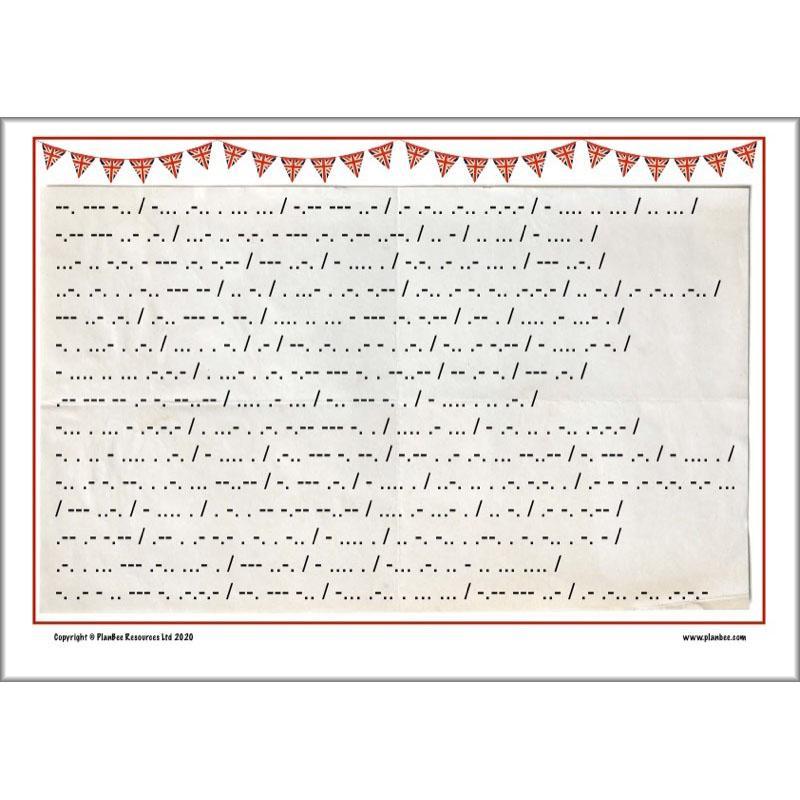 --. --- -.. / -... .-.. . ... ... / -.-- --- ..- / .- .-.. .-.. .-.-.- / - .... .. ... / .. ... /
-.-- --- ..- .-. / .. - / .. ... / - .... . /
...- .. -.-. - --- .-. -.-- / --- ..-. / - .... . / -.-. .- ..- ... . / --- ..-. /
..-. .-. . . -.. --- -- / .. -. / . ...- . .-. -.-- / .-.. .- -. -.. .-.-.- / .. -. / .- .-.. .-.. /
--- ..- .-. / .-.. --- -. --. / .... .. ... - --- .-. -.-- / .-- . / .... .- ...- . /
-. . ...- . .-. / ... . . -. / .- / --. .-. . .- - . .-. / -.. .- -.-- / - .... .- -. /
- .... .. ... .-.-.- / -- .- -. / --- .-. /
.... .- ... / -.. --- -. . /
.... .- ... / - .-. .. . -.. .-.-.- /
-. . .. - .... . .-. / - .... . / .-.. --- -. --. / -. --- .-. / - .... . /
/ --- ..-. / - .... . / .. -. / .- -. -.-- /
.-- .- -.-- / .-- . .- -.- . -. . -.. / - .... . / .. -. -.. . .--. . -. -.. . -. - /
--- ..-. / - .... . / -... .-. .. - .. ... .... /
-. .- - .. --- -. .-.-.- / --. --- -.. / -... .-.. . ... ... / -.-- --- ..- / .- .-.. .-.. .-.-.-
Copyright © PlanBee Resources Ltd 2020
www.planbee.com